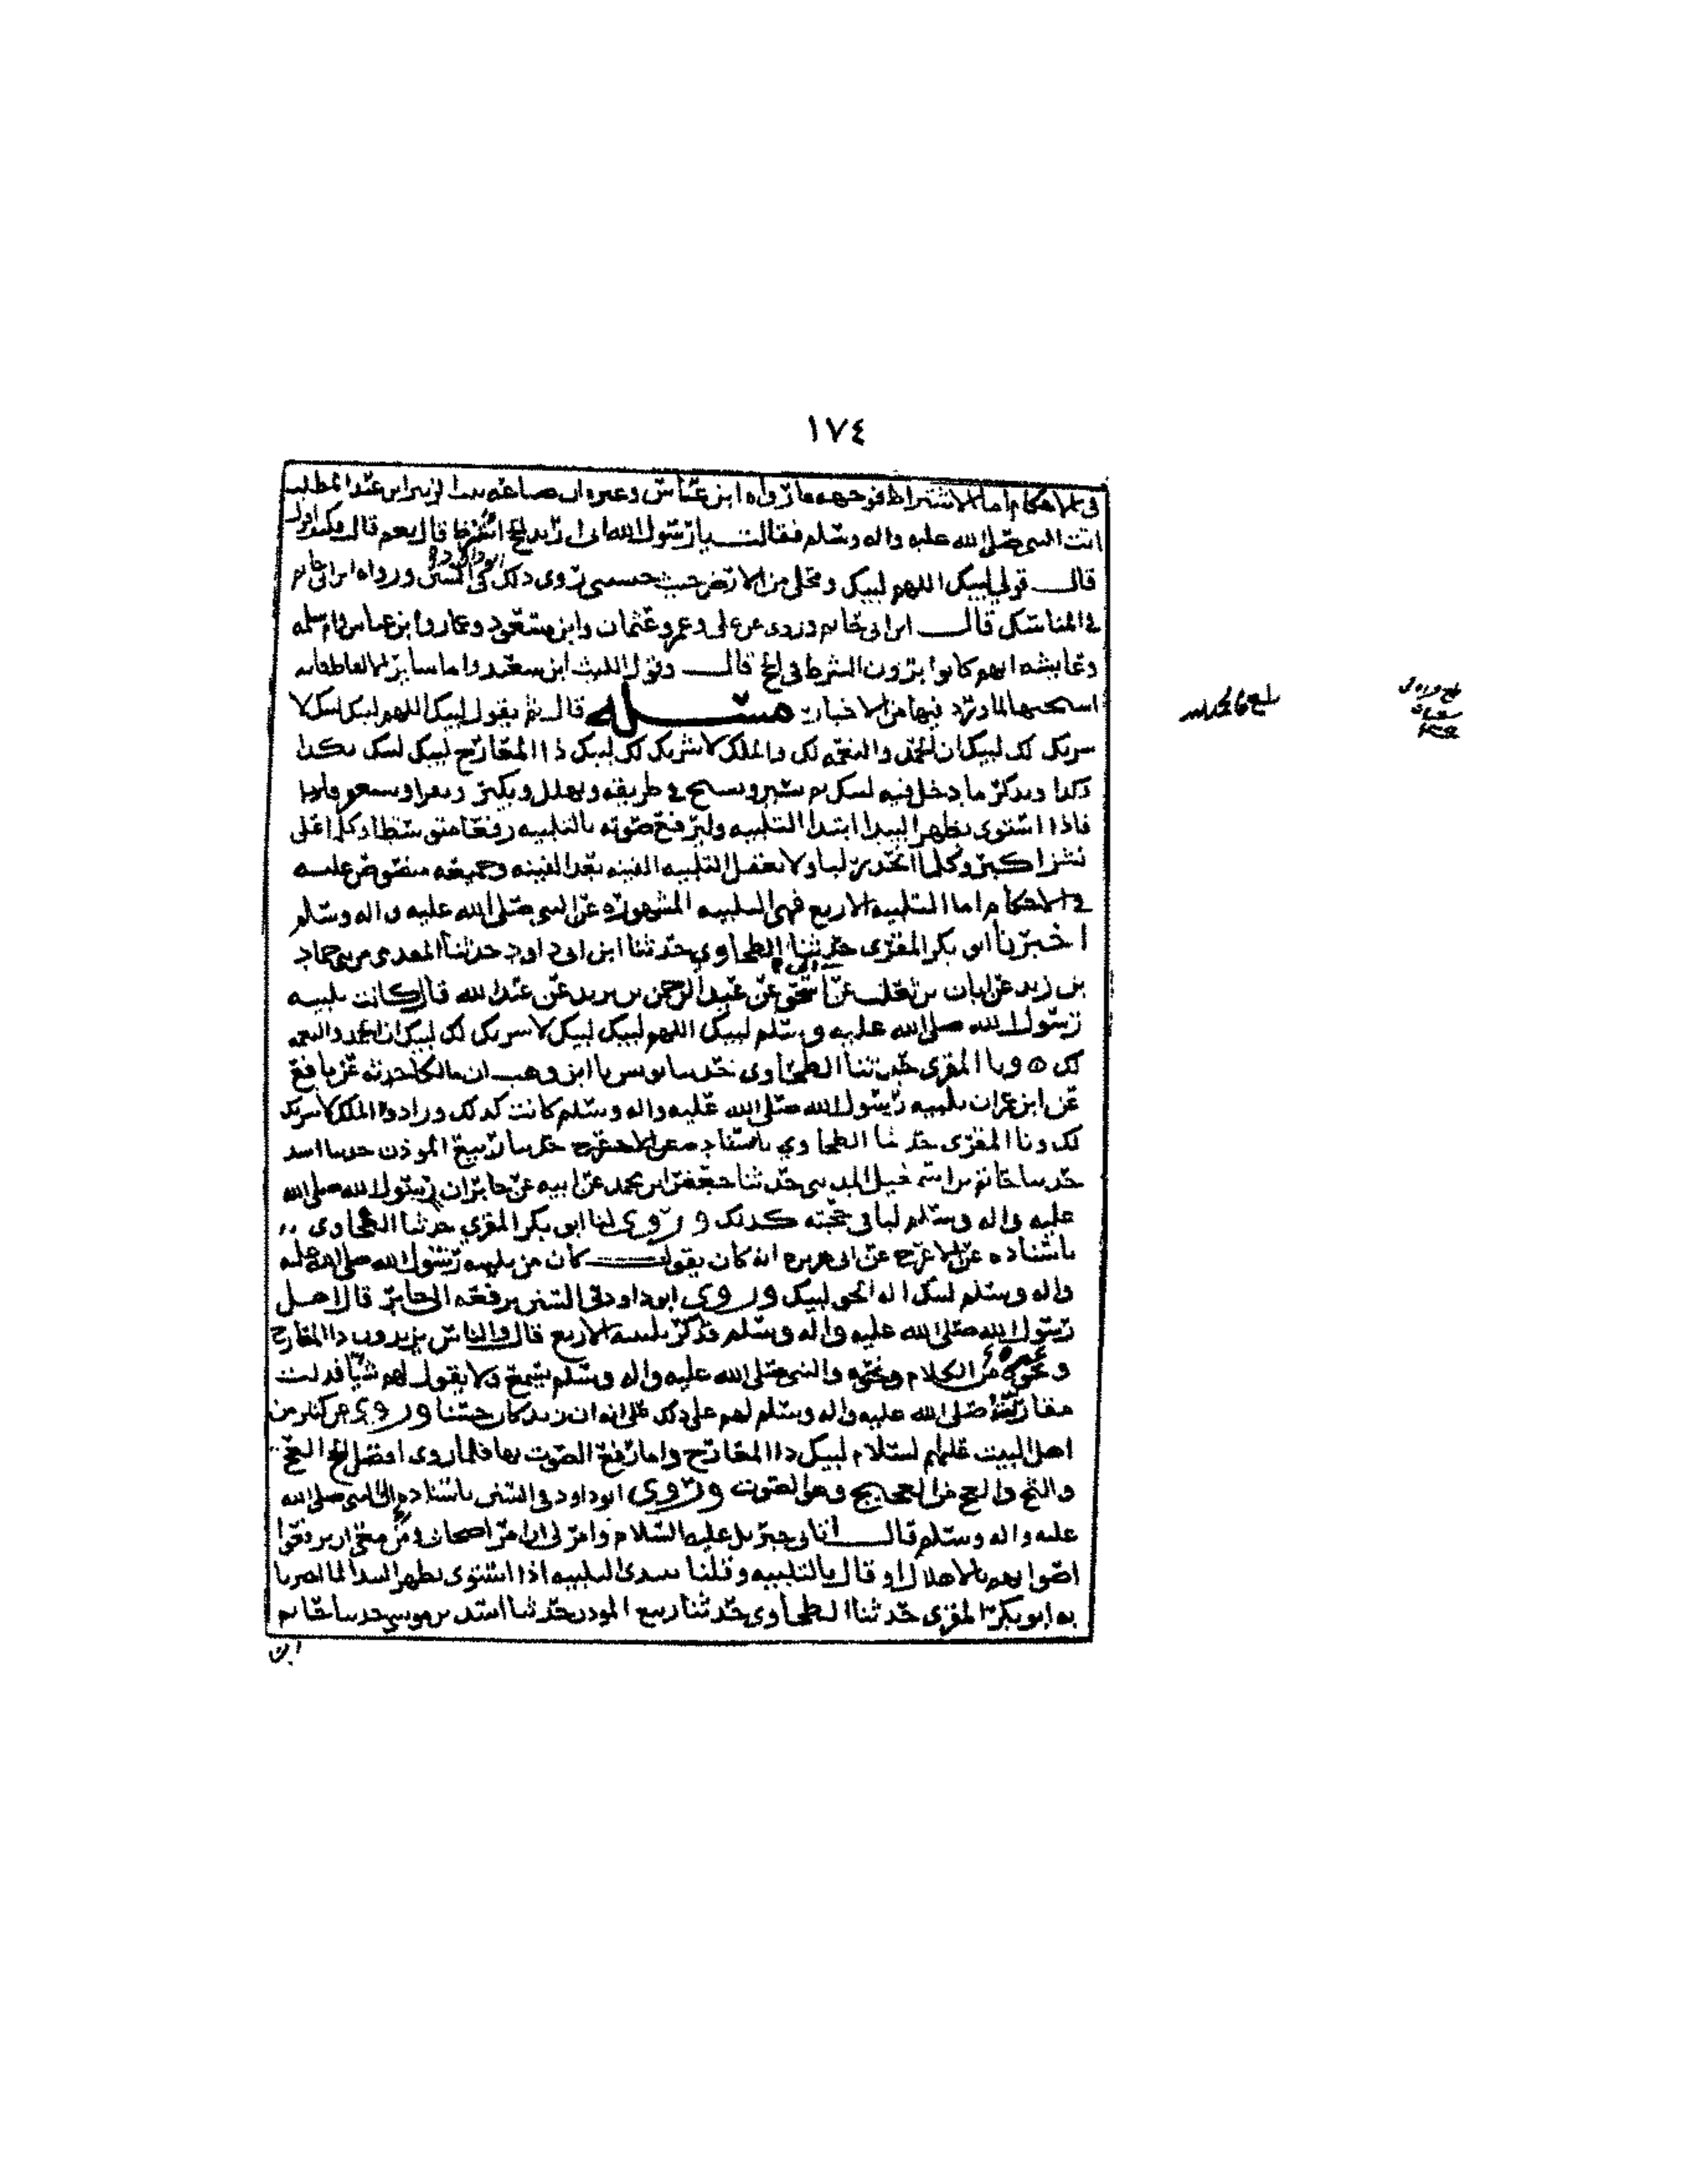 ١٧٤
في الاحكام اما الاشتراط فوجهه مارواه ابن عباس وغيره ان ضباعه بنت الزبير ابن عبد المطلب
اتت النبي صلى الله عليه واله وسلم فقالت يا رسول الله اني اريد الحج اشترط قال نعم قالت فكيف اقول
قال قولي لبيك اللهم لبيك ومحلي من الارض حيث حبستني روى ذلك ابو داود في السنن ورواه ابن ابي حاتم
في المناسك قال ابن ابي حاتم وروي عن علي وعمر وعثمان وابن مسعود وعمار وابن عباس وام سلمه
وعايشه انهم كانوا يرون الشرط في الحج قال وقول الليث ابن سعد واما ساير الالفاظ فانه
استحبها لما ورد فيها من الاخبار مسئله قال ثم يقول لبيك اللهم لبيك لبيك لا
شريك لك لبيك ان الحمد والنعمه لك والملك لا شريك لك لبيك ذا المعارج لبيك لبيك بكذا
وكذا ويذكر ما دخل فيه لبيك ثم يسير ويسبح في طريقه ويهلل ويكبر ويقرا ويستغفر
فاذا استوى بظهر البيدا ابتدا التلبيه وليرفع صوته بالتلبيه رفعا متوسطا وكلما علا
نشزا كبر وكلما انحدر لبا ولا يغفل التلبيه الفينه بعد الفينه وجميعه منصوص عليه
في الاحكام اما التلبيه الاربع فهي التلبيه المشهوره عن النبي صلى الله عليه واله وسلم
اخبرنا ابو بكر المقري حدثنا الطحاوي حدثنا ابن ابي داود حدثنا المقدمي حماد
بن زيد عن ابان بن تغلب عن ابي اسحق عن عبد الرحمن بن يزيد عن عبد الله قال كانت تلبيه
رسول الله صلى الله عليه وسلم لبيك اللهم لبيك لبيك لا شريك لك لبيك ان الحمد والنعمه
لك ٥ ونا المقري حدثنا الطحاوي حدثنا يونس نا ابن وهب ان مالكا حدثه عن نافع
عن ابن عمر ان تلبيه رسول الله صلى الله عليه واله وسلم كانت كذلك وزاد والملك لا شريك
لك ونا المقري حدثنا الطحاوي باسناده عن الاعرج حدثنا ربيع الموذن حدثنا اسد
حدثنا حاتم بن اسمعيل المديني حدثنا جعفر ابن محمد عن ابيه عن جابر ان رسول الله صلى الله
عليه واله وسلم لبا في حجته كذلك وروى لنا ابو بكر المقري حدثنا الطحاوي
باسناده عن الاعرج عن ابي هريره انه كان يقول كان من تلبيه رسول الله صلى الله عليه
واله وسلم لبيك اله الحق لبيك وروى ابو داود في السنن يرفعه الى جابر قال اهل
رسول الله صلى الله عليه واله وسلم فذكر تلبيته الاربع قال والناس يزيدون ذا المعارج
ونحوه من الكلام والنبي صلى الله عليه واله وسلم يسمع ولا يقول لهم شيا فدلت
مقارته صلى الله عليه واله وسلم لهم على ذلك على انه ان زيد كان حسنا وروي عن كثير من
اهل البيت عليهم السلام لبيك ذا المعارج واما رفع الصوت بها فلما روى افضل الحج العج
والثج والعج من العجيج وهو الصوت وروى ابو داود في السنن باسناده الى النبي صلى الله
عليه واله وسلم قال اتاني جبريل عليه السلام وامرني ان امر اصحابي ومن معي ان يرفعوا
اصواتهم بالاهلال او قال بالتلبيه وقلنا يبتدي التلبيه اذا استوى بظهر البيدا لما اخبرنا
به ابو بكر المقري حدثنا الطحاوي حدثنا ربيع الموذن حدثنا اسد بن موسى حدثنا حاتم
ابن